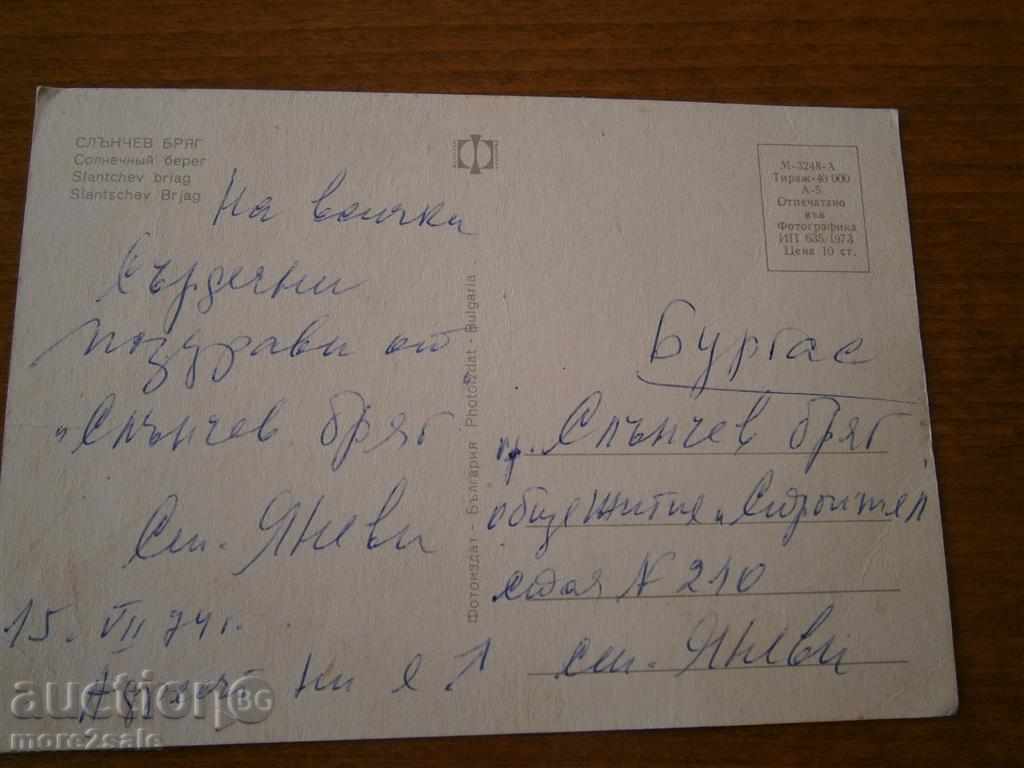 СЛЪНЧЕВ БРЯГ
Солнечный берег
Slantchev briag
Slantschev Brjag
На всички
Сърдечни
поздрави от
"Слънчев бряг
Сем. Яневи
15. VII 74 г.
Адресът ни е:
Фотоиздат - България Photoizdat - Bulgaria
М-3248-А
Тираж-40 000
А-5
Отпечатано
във
Фотографика
ИП 635/1973
Цена 10 ст.
Бургас
Слънчев бряг
общежитие "Строител
стая N 210
сем. Яневи
auction BG
more2sale